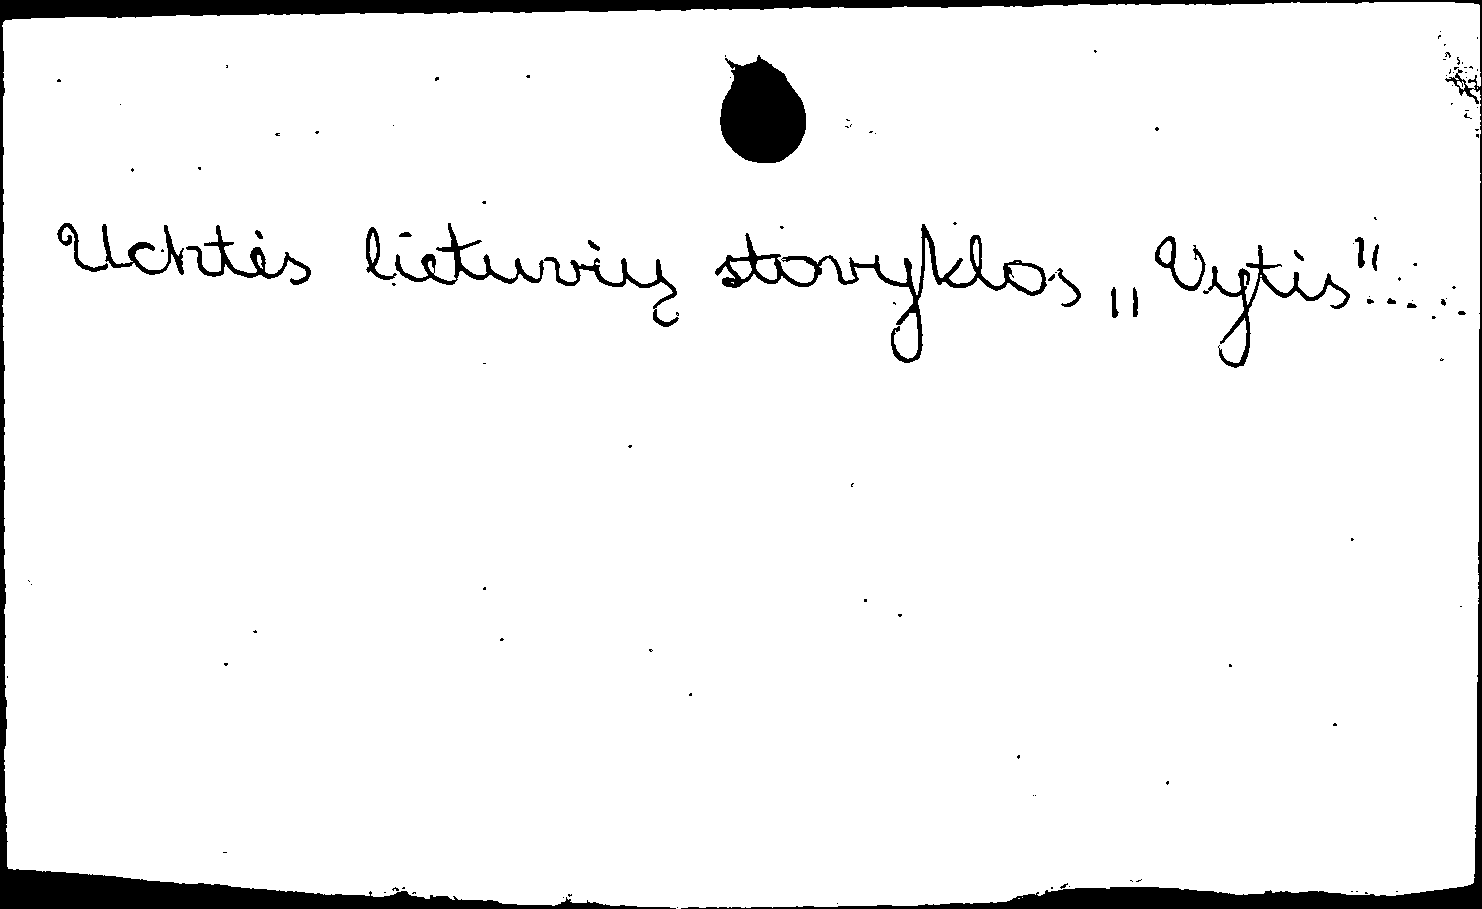 Uchtės lietuvių stovyklos „Vytis"....